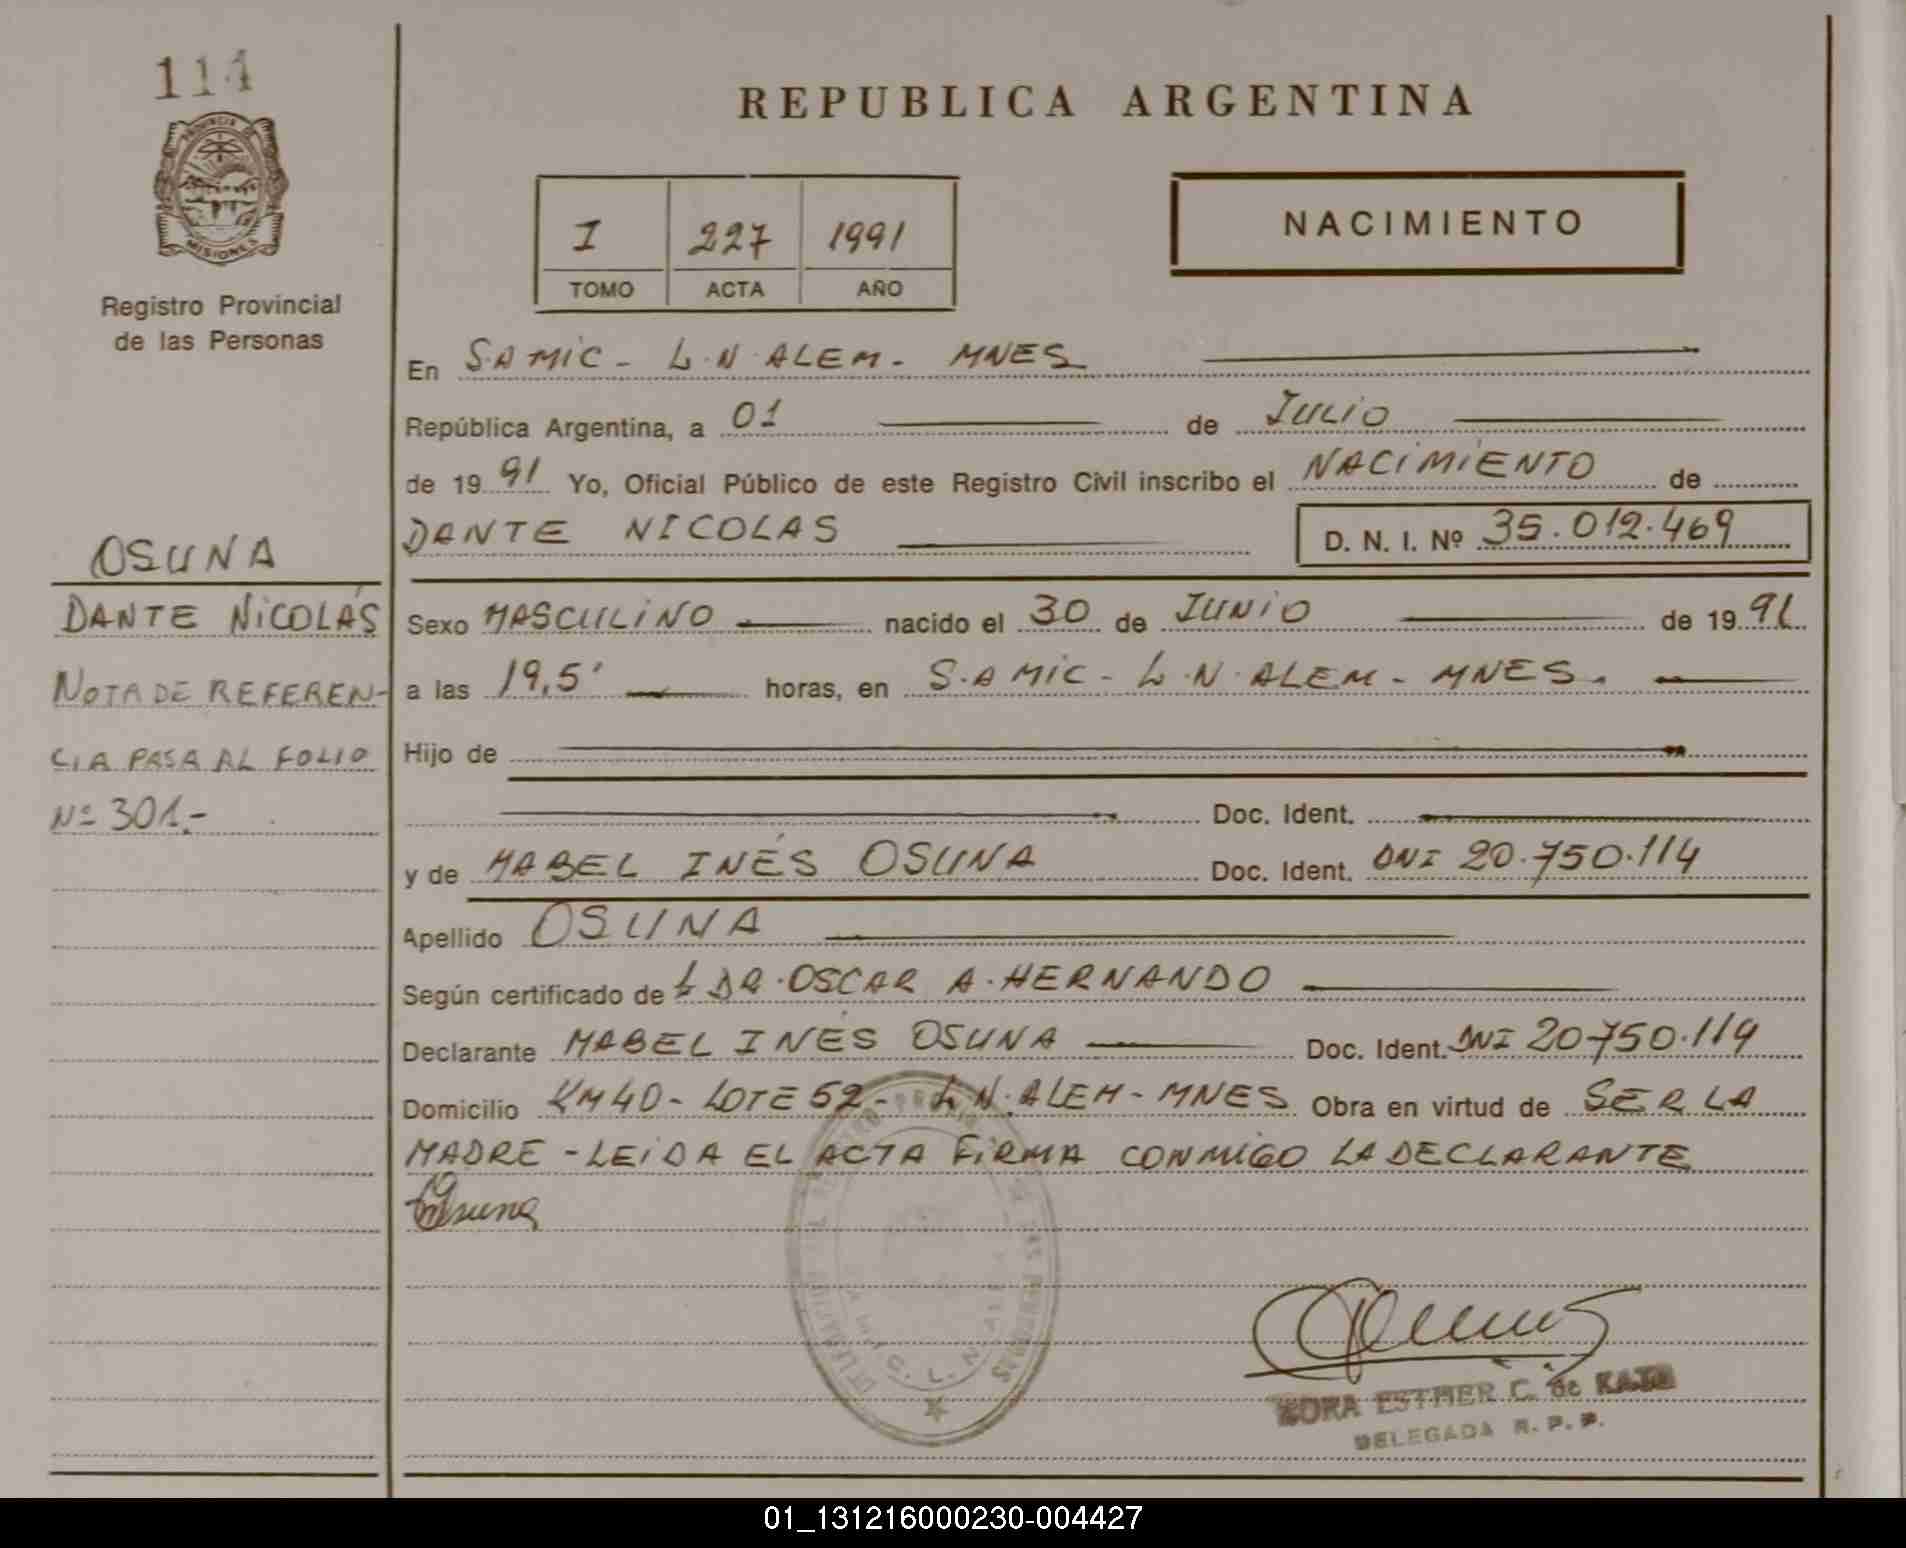 114
PROVINCIA DE
MISIONES
Registro Provincial
de las Personas
OSUNA
DANTE NICOLÁS
NOTA DE REFEREN-
CIA PASA AL FOLIO
Nº 301.-
REPUBLICA ARGENTINA
I 227 1991
TOMO ACTA AÑO
NACIMIENTO
En S.A MIC - L.N.ALEM - MNES
República Argentina, a 01 de JULIO
de 1991 Yo, Oficial Público de este Registro Civil inscribo el NACIMIENTO de
DANTE NICOLAS D. N. I. Nº 35.012.469
Sexo MASCULINO nacido el 30 de JUNIO de 1991
a las 19,5' horas, en S.A MIC - L.N.ALEM - MNES.
Hijo de
Doc. Ident.
y de MABEL INÉS OSUNA Doc. Ident. DNI 20.750.114
Apellido OSUNA
Según certificado de L DR. OSCAR A. HERNANDO
Declarante MABEL INÉS OSUNA Doc. Ident. DNI 20.750.114
Domicilio KM 40 - LOTE 52 - L.N.ALEM - MNES Obra en virtud de SER LA
MADRE - LEIDA EL ACTA FIRMA CONMIGO LA DECLARANTE
Osuna
ESTHER C. de KATO
DELEGADA R. P. P.
01_131216000230-004427